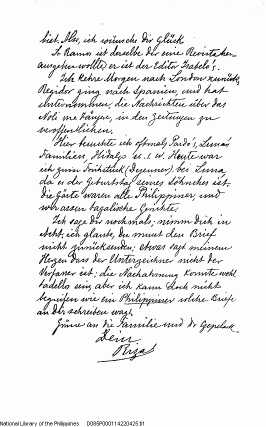 bist. Also, ich wünsche dir Glück
So Ramo ist derselbe der eine Revista her-
ausgeben wollte; er ist der Editor Isabelo's.
Ich kehre Morgen nach London zurück,
Regidor ging nach Spanien, und hat
unternommen, die Nachrichten über das
Noli me tángere, in den Zeitungen zu
veröffentlichen.
Hier besuchte ich oftmals Pardo's, Luna's
Familien, Hidalgo u.s.w. Heute war
ich zum Frühstück (Dejeuner) bei Luna
da es der Geburtstag seines Söhnches ist.
die Gäste waren alle Philippiner, und
wir assen tagalische Gerichte.
Ich sage dir nochmals: nimm dich in
Acht; ich glaube, du musst den Brief
nicht zurücksenden; etwas sagt meinem
Herzen dass der Unterzeichner nicht der
Verfasser ist; die Nachahmung könnte wohl
tadellos sein, aber ich kann doch nicht
begreifen wie ein Philippiner solche Briefe
an der schreiben wagt.
Grüsse an die Familie und Dr
Dein
Rizal
National Library of the Philippines 0086P00011422042501